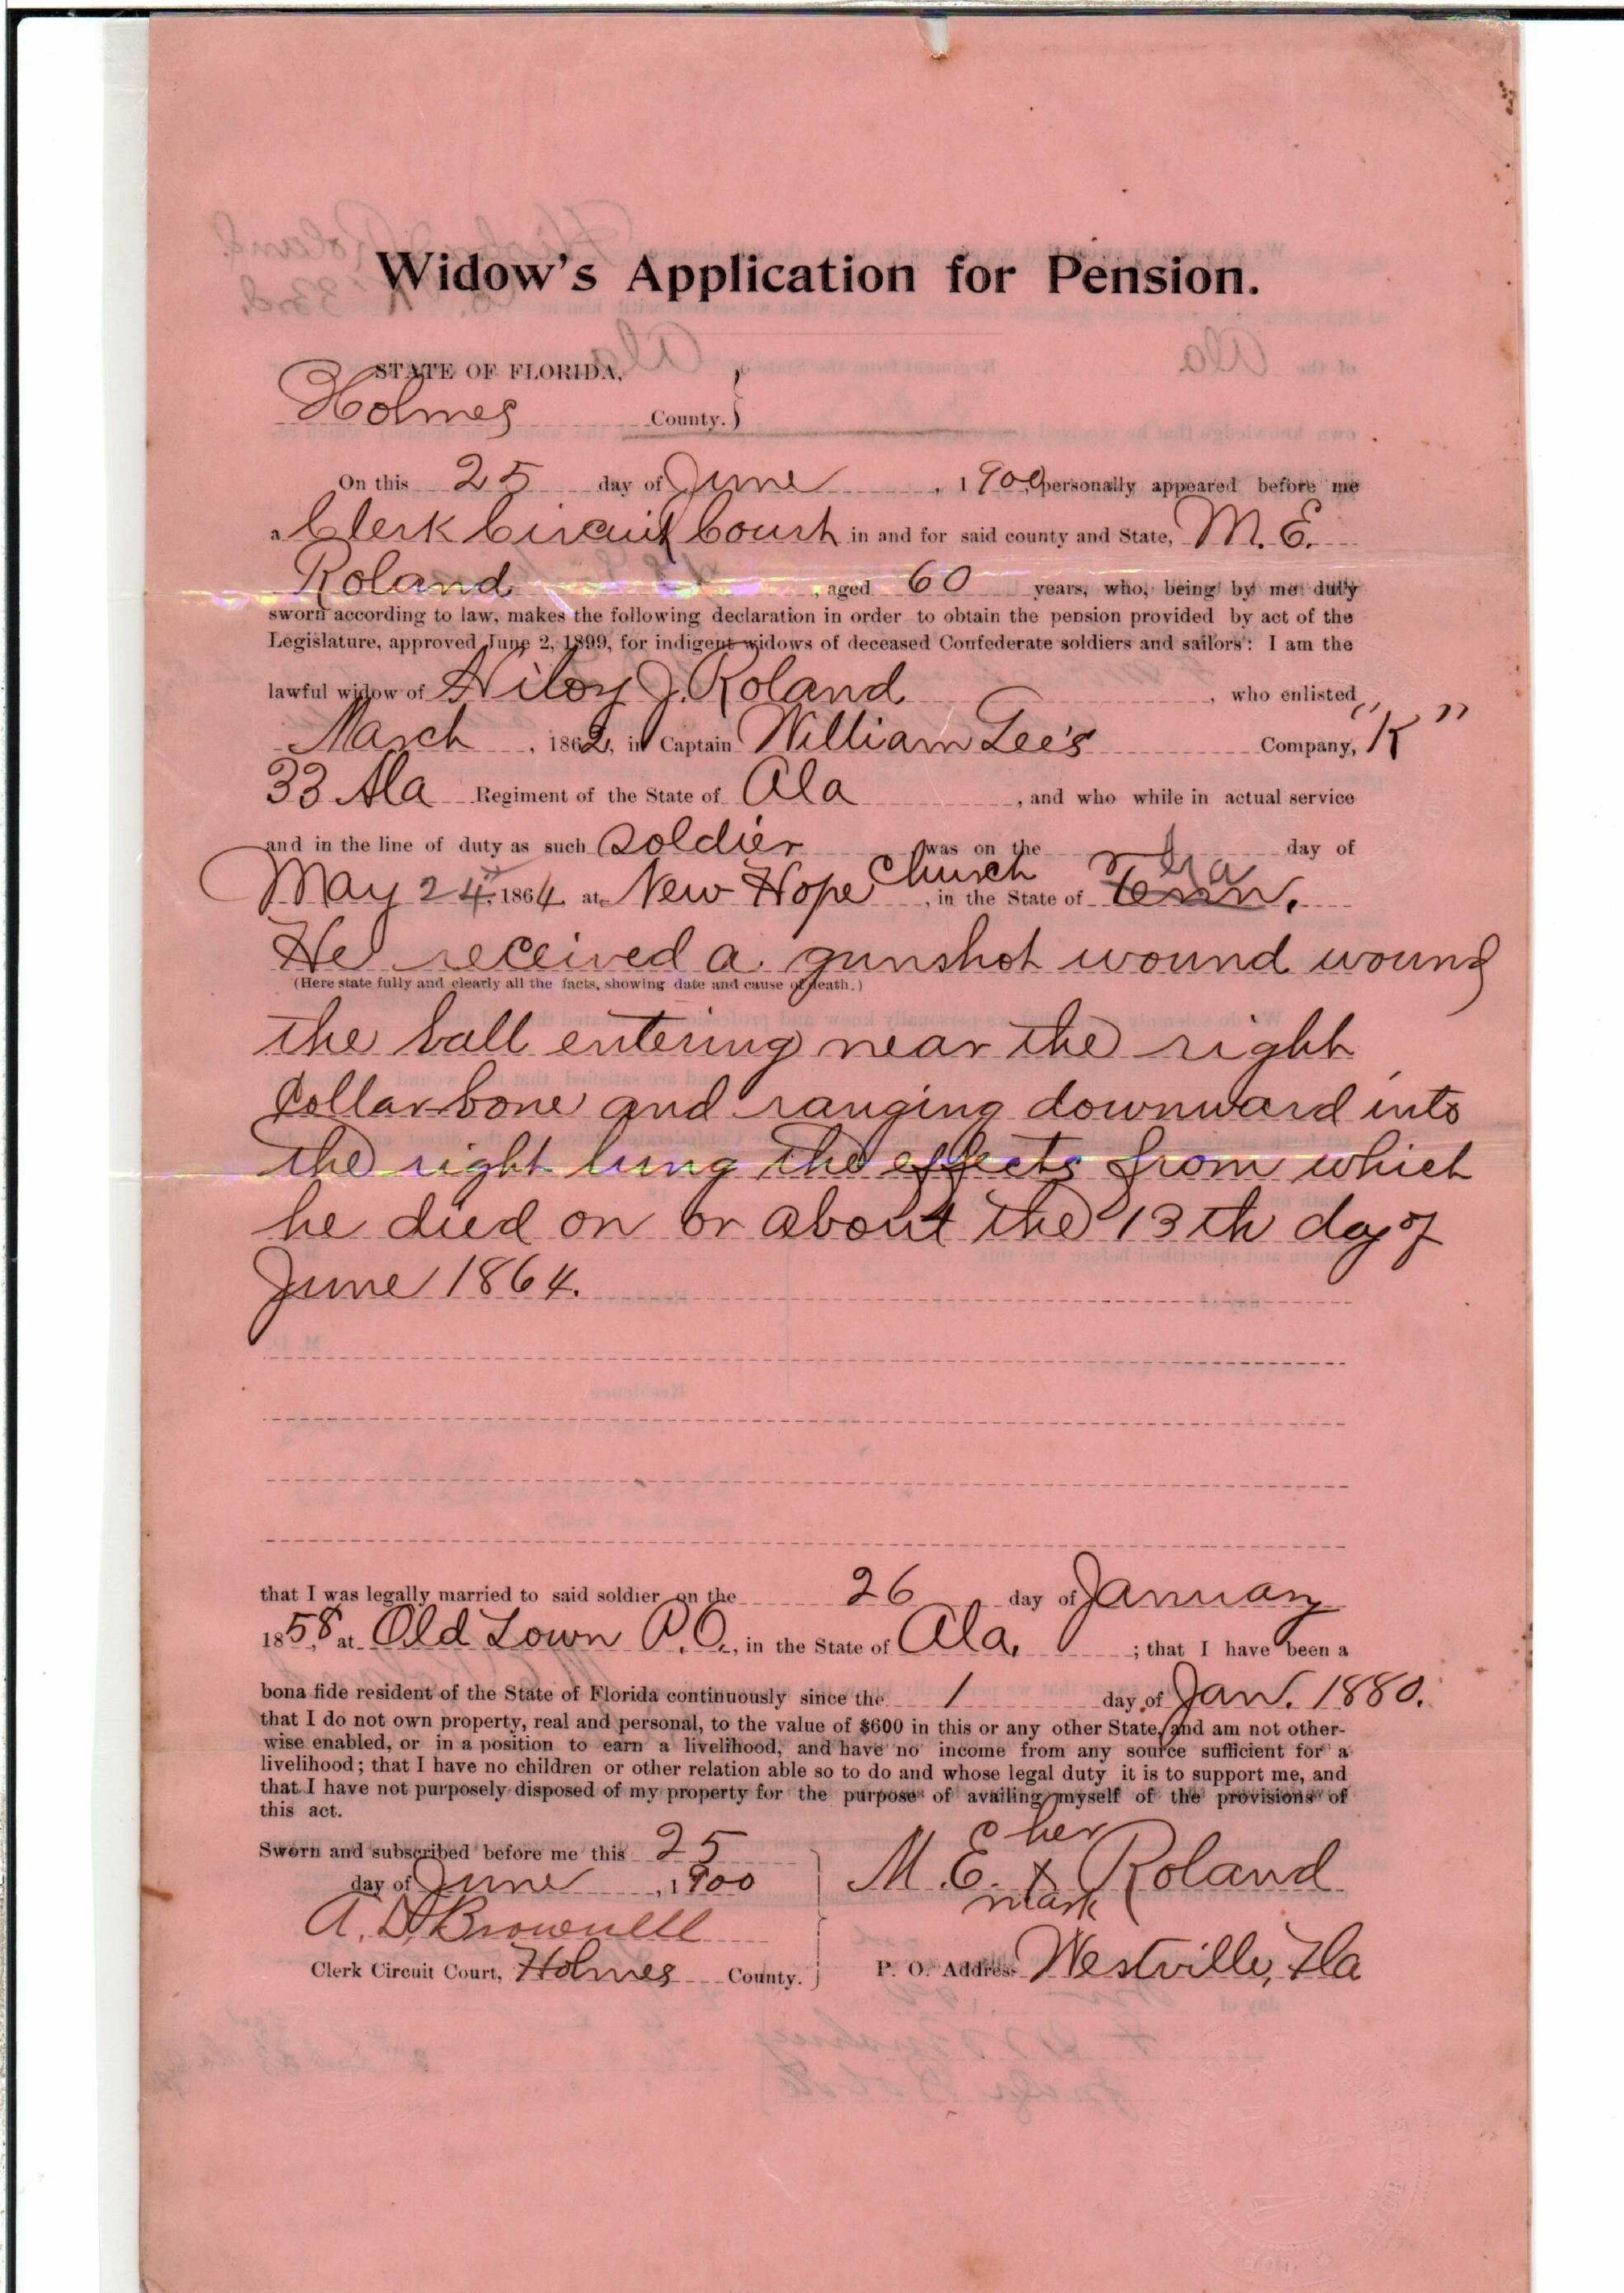 Widow's Application for Pension.
STATE OF FLORIDA,
Holmes County.
On this 25 day of June, 1900, personally appeared before me
a Clerk Circuit Court in and for said county and State, M. E.
Roland, aged 60 years, who, being by me duly
sworn according to law, makes the following declaration in order to obtain the pension provided by act of the
Legislature, approved June 2, 1899, for indigent widows of deceased Confederate soldiers and sailors: I am the
lawful widow of J. Roland, who enlisted
March, 1862, in Captain William Lee's Company, "K"
33 Ala Regiment of the State of Ala, and who while in actual service
and in the line of duty as such soldier was on the day of
May 24, 1864 at New Hope Church, in the State of Tenn.
He received a gunshot wound wound
(Here state fully and clearly all the facts, showing date and cause of death.)
the ball entering near the right
Collar bone and ranging downward into
the right lung the effects from which
he died on or about the 13th day of
June 1864.
that I was legally married to said soldier on the 26 day of January
1858, at Old Town P.O., in the State of Ala.; that I have been a
bona fide resident of the State of Florida continuously since the 1 day of Jan. 1880.
that I do not own property, real and personal, to the value of $600 in this or any other State, and am not other-
wise enabled, or in a position to earn a livelihood, and have no income from any source sufficient for a
livelihood; that I have no children or other relation able so to do and whose legal duty it is to support me, and
that I have not purposely disposed of my property for the purpose of availing myself of the provisions of
this act.
Sworn and subscribed before me this 25
day of June, 1900
A. D. Brownell
Clerk Circuit Court, Holmes County.
her
M. E. x Roland
mark
P. O. Address Westville, Fla